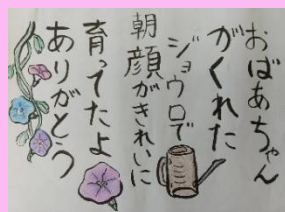 おばあちゃん
がくれた
ジョウロで
朝顔がきれいに
育ってたよ
ありがとう